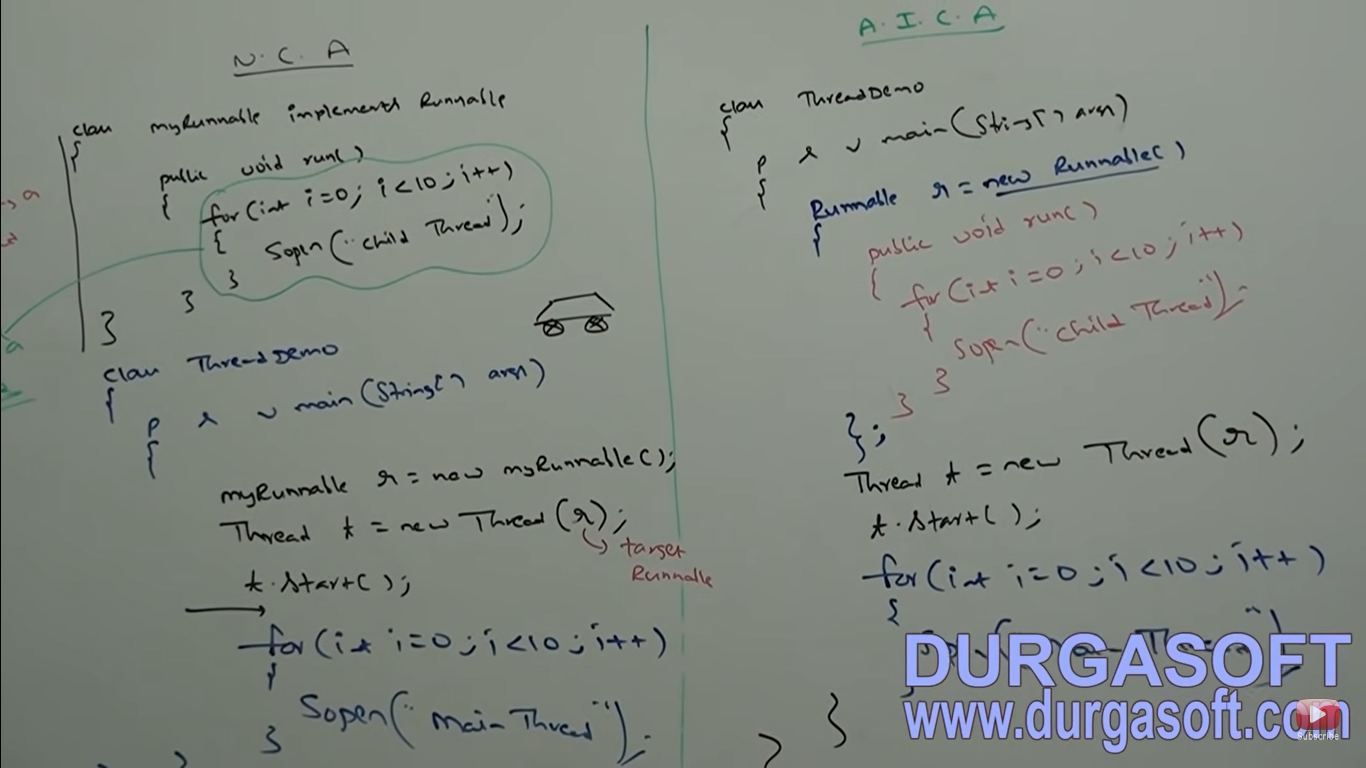 N.C.A
class myRunnable implements Runnable
{
public void run()
{
for(int i=0; i<10; i++)
{
Sopln("child Thread");
}
}
}
class ThreadDemo
{
p s v main(String[] args)
{
myRunnable r = new myRunnable();
Thread t = new Thread(r);
target
Runnable
t.start();
for(int i=0; i<10; i++)
{
Sopln("main Thread");
}
A.I.C.A
class ThreadDemo
{
p s v main(String[] args)
{
Runnable r = new Runnable()
{
public void run()
{
for(int i=0; i<10; i++)
{
Sopln("child Thread");
}
}
};
Thread t = new Thread(r);
t.start();
for(int i=0; i<10; i++)
{
}
}
DURGASOFT
www.durgasoft.com
Subscribe